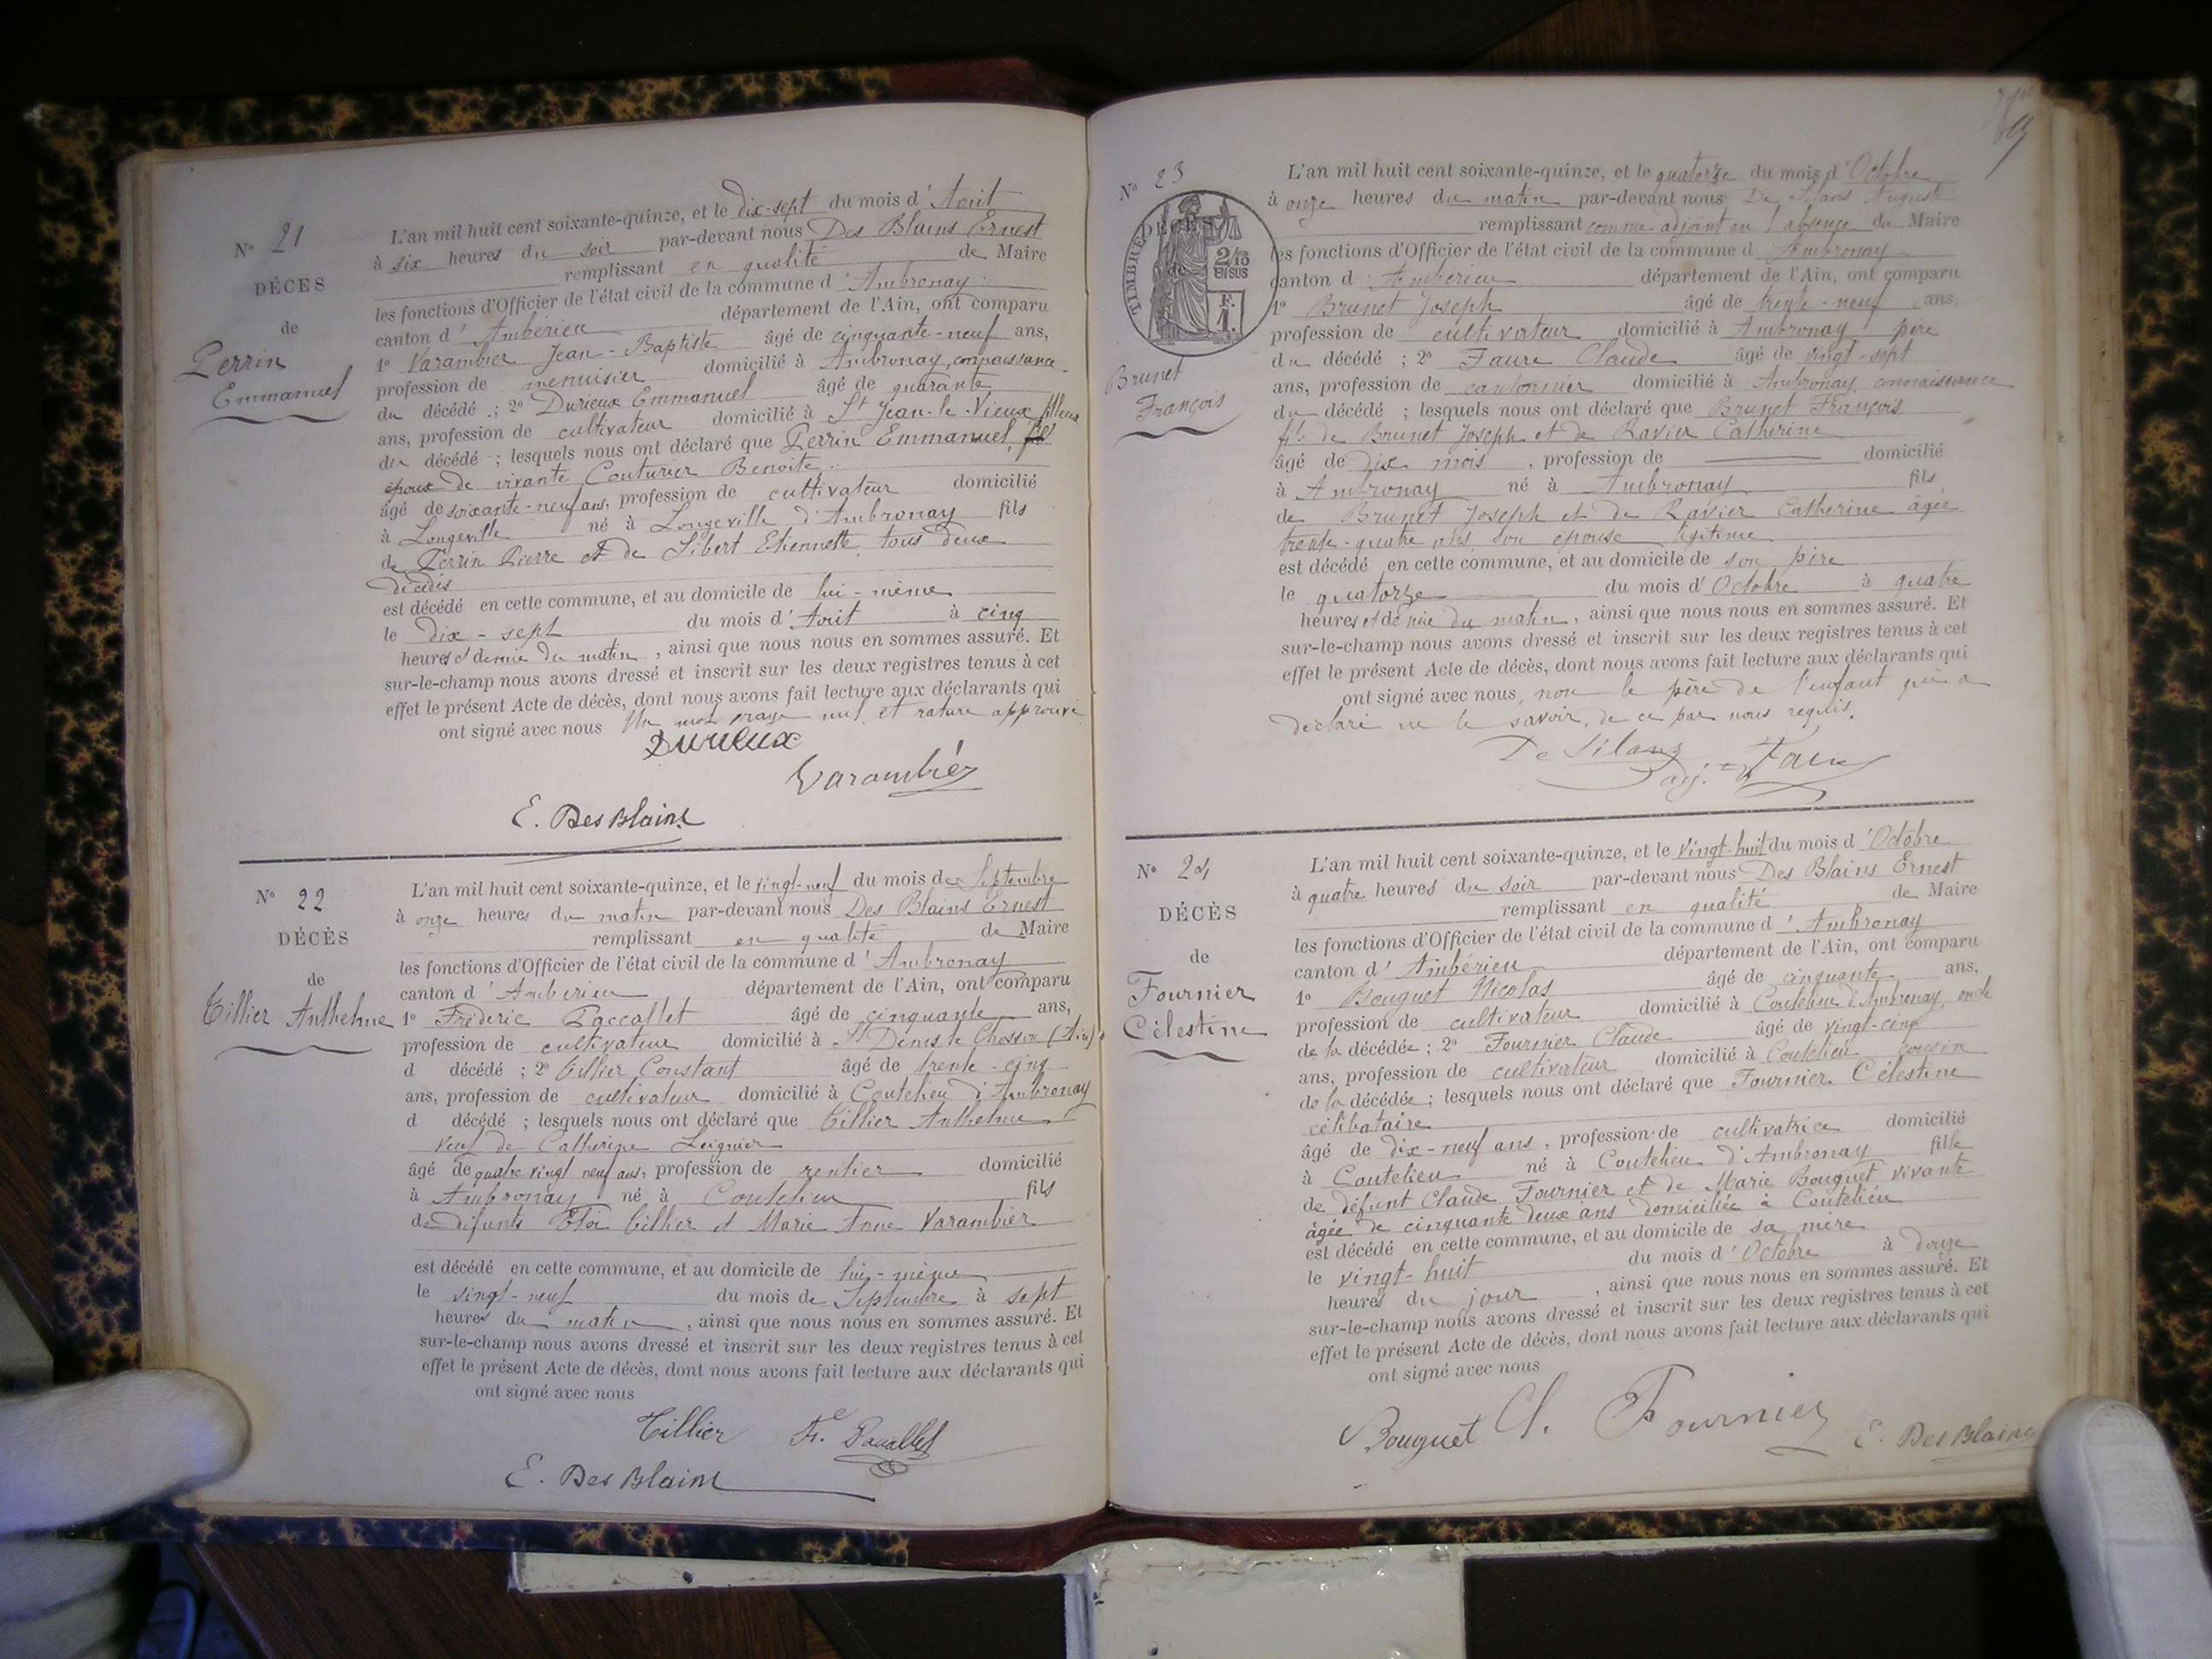 N° 21
DÉCES
de
Perrin
Emmanuel
L'an mil huit cent soixante-quinze, et le dix-sept du mois d'Aout
à six heures du soir par-devant nous Des Blains Ernest
remplissant en qualité de Maire
les fonctions d'Officier de l'état civil de la commune d'Ambronay
canton d'Ambérieu département de l'Ain, ont comparu
1° Varambier Jean-Baptiste âgé de cinquante-neuf ans,
profession de menuisier domicilié à Ambronay, connaissance
du décédé ; 2° Durieux Emmanuel âgé de quarante
ans, profession de cultivateur domicilié à St Jean-le-Vieux filleul
du décédé ; lesquels nous ont déclaré que Perrin Emmanuel
époux de vivante Couturier Benoite
âgé de soixante-neuf ans, profession de cultivateur domicilié
à Longeville né à Longeville d'Ambronay fils
de Perrin Pierre et de Sibert Etiennette, tous deux
décédés
est décédé en cette commune, et au domicile de lui-même
le dix-sept du mois d'Aout à cinq
heures et demie du matin, ainsi que nous nous en sommes assuré. Et
sur-le-champ nous avons dressé et inscrit sur les deux registres tenus à cet
effet le présent Acte de décès, dont nous avons fait lecture aux déclarants qui
ont signé avec nous Un mot rayé nul et rature approuvé
Durieux
Varambier
E. Des Blains
N° 22
DÉCÈS
de
Tillier Anthelme
L'an mil huit cent soixante-quinze, et le vingt-neuf du mois de Septembre
à onze heures du matin par-devant nous Des Blains Ernest
remplissant en qualité de Maire
les fonctions d'Officier de l'état civil de la commune d'Ambronay
canton d'Ambérieu département de l'Ain, ont comparu
1° Frédéric Paccallet âgé de cinquante ans,
profession de cultivateur domicilié à St Denis le Chosson (Ain)
d décédé ; 2° Tillier Constant âgé de trente-cinq
ans, profession de cultivateur domicilié à Coutelieu d'Ambronay
d décédé ; lesquels nous ont déclaré que Tillier Anthelme
veuf de Catherine Leignier
âgé de quatre vingt neuf ans, profession de rentier domicilié
à Ambronay né à Coutelieu fils
de défunts Eloi Tillier et Marie Anne Varambier
est décédé en cette commune, et au domicile de lui-même
le vingt-neuf du mois de Septembre à sept
heures du matin, ainsi que nous nous en sommes assuré. Et
sur-le-champ nous avons dressé et inscrit sur les deux registres tenus à cet
effet le présent Acte de décès, dont nous avons fait lecture aux déclarants qui
ont signé avec nous
Tillier Fc. Paccallet
E. Des Blains
N° 23
TIMBRE DÉCÈS
de
2/10
EN SUS
F.
1.
Brunet
François
L'an mil huit cent soixante-quinze, et le quatorze du mois d'Octobre
à onze heures du matin par-devant nous De Silans Auguste
remplissant comme adjoint en l'absence du Maire
les fonctions d'Officier de l'état civil de la commune d Ambronay
canton d'Ambérieu département de l'Ain, ont comparu
1° Brunet Joseph âgé de trente-neuf ans,
profession de cultivateur domicilié à Ambronay père
du décédé ; 2° Faure Claude âgé de vingt-sept
ans, profession de cantonnier domicilié à Ambronay connaissance
du décédé ; lesquels nous ont déclaré que Brunet François
fils de Brunet Joseph et de Ravier Catherine
âgé de dix mois, profession de domicilié
à Ambronay né à Ambronay fils
de Brunet Joseph et de Ravier Catherine âgée
trente-quatre ans, son épouse légitime
est décédé en cette commune, et au domicile de son père
le quatorze du mois d'Octobre à quatre
heures et demie du matin, ainsi que nous nous en sommes assuré. Et
sur-le-champ nous avons dressé et inscrit sur les deux registres tenus à cet
effet le présent Acte de décès, dont nous avons fait lecture aux déclarants qui
ont signé avec nous, non le père de l'enfant qui a
déclaré ne le savoir, de ce par nous requis.
De Silans
adj. Faure
N° 24
DÉCÈS
de
Fournier
Célestine
L'an mil huit cent soixante-quinze, et le vingt-huit du mois d'Octobre
à quatre heures du soir par-devant nous Des Blains Ernest
remplissant en qualité de Maire
les fonctions d'Officier de l'état civil de la commune d'Ambronay
canton d'Ambérieu département de l'Ain, ont comparu
1° Bouguet Nicolas âgé de cinquante ans,
profession de cultivateur domicilié à Coutelieu d'Ambronay, oncle
de la décédée ; 2° Fournier Claude âgé de vingt-cinq
ans, profession de cultivateur domicilié à Coutelieu cousin
de la décédée ; lesquels nous ont déclaré que Fournier Célestine
célibataire
âgé de dix-neuf ans, profession de cultivatrice domicilié
à Coutelieu né à Coutelieu d'Ambronay fille
de défunt Claude Fournier et de Marie Bouguet vivante
âgée de cinquante deux ans domiciliée à Coutelieu
est décédé en cette commune, et au domicile de sa mère
le vingt-huit du mois d'Octobre à douze
heures du jour, ainsi que nous nous en sommes assuré. Et
sur-le-champ nous avons dressé et inscrit sur les deux registres tenus à cet
effet le présent Acte de décès, dont nous avons fait lecture aux déclarants qui
ont signé avec nous
Bouguet Cl. Fournier E. Des Blains